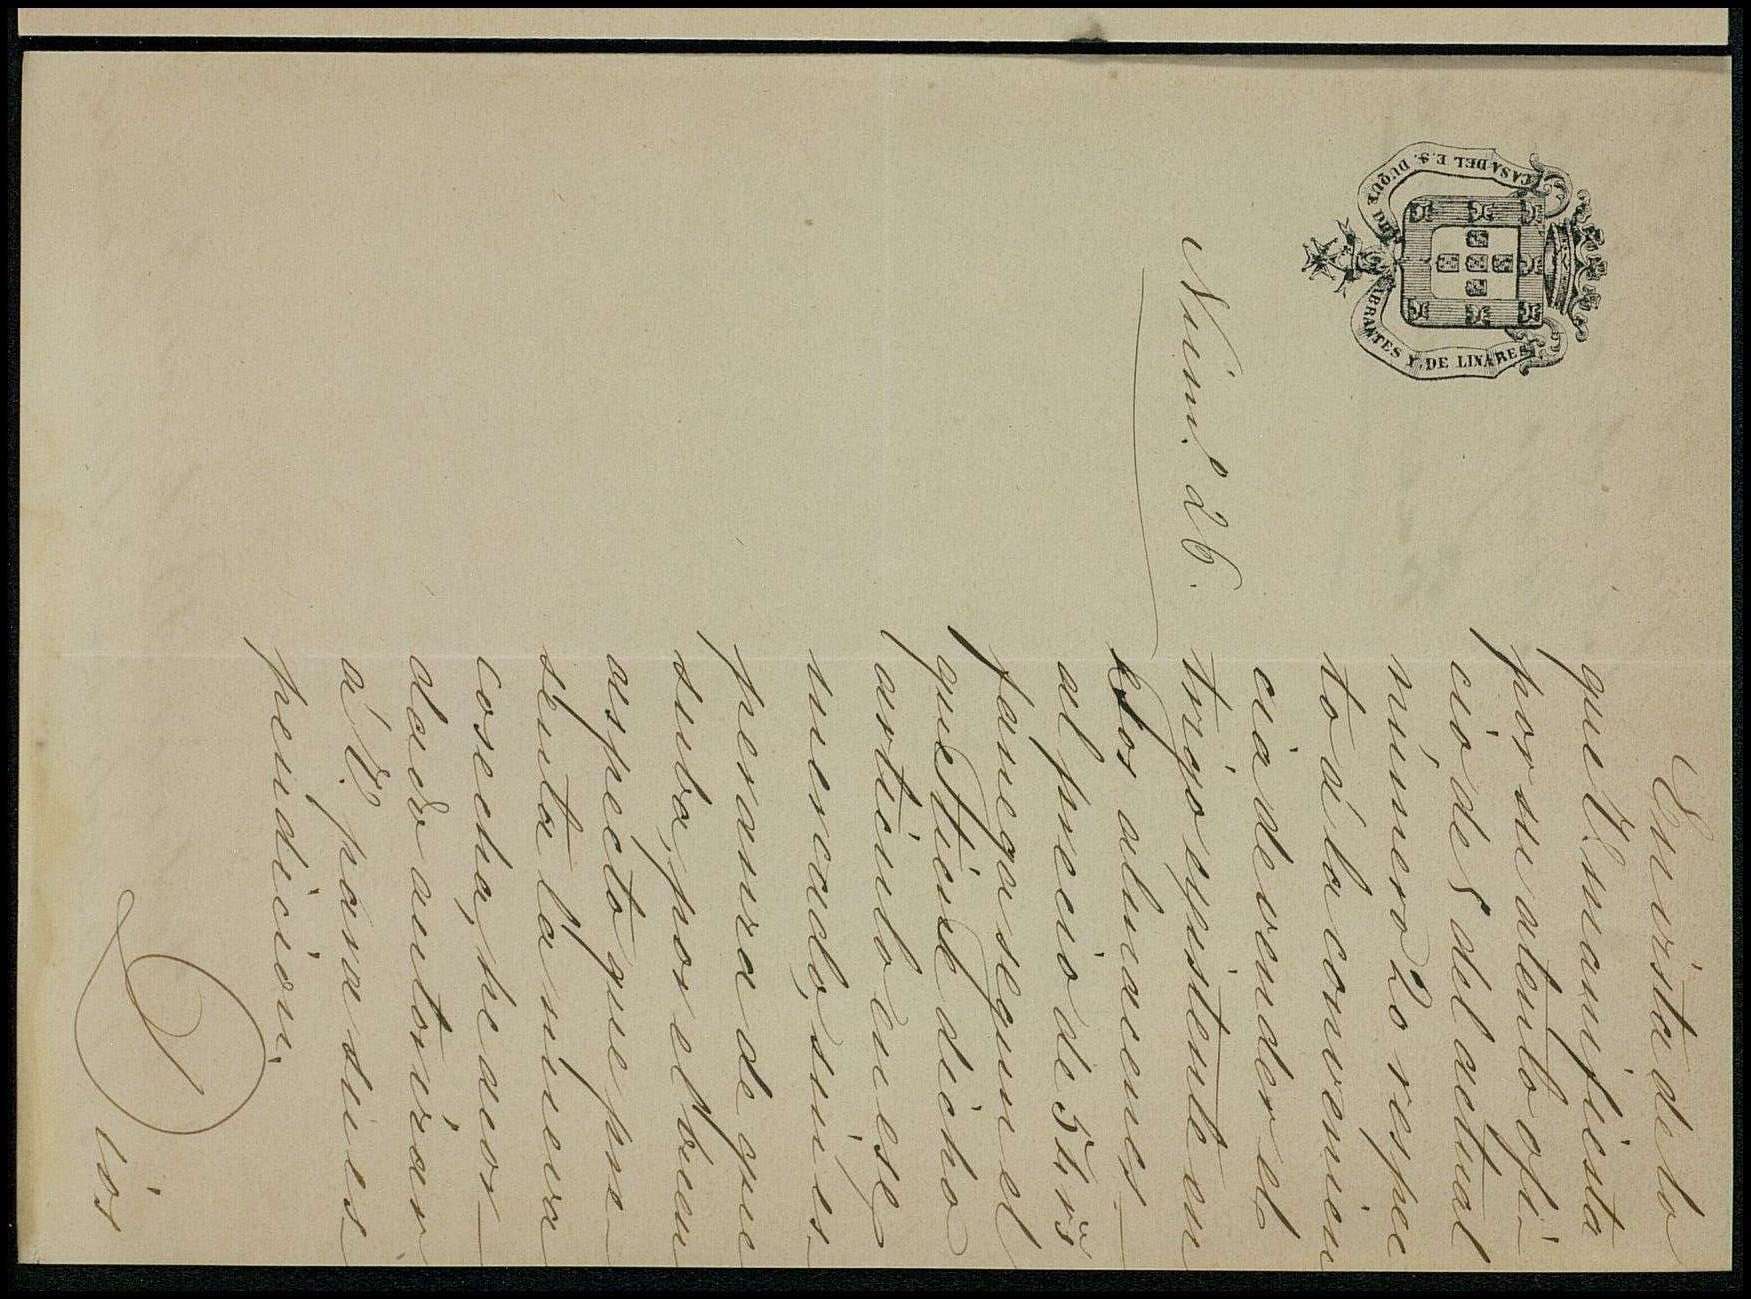 CASA DEL E.S. DUQUE DE ABRANTES Y DE LINARES
Núm.º 26.
En vista de lo
que V. manifiesta
por su atento ofi-
cio de 5 del actual
número 20 respec
to á la convenien
cia de vender el
trigo existente en
esos almacenes
al precio de 54 rs
fanega segun el
que tiene dicho
artículo en ese
mercado, sin es-
peranza de que
suba, por el buen
aspecto que pre-
senta la nueva
cosecha, he acor-
dado autorizar
á V. para su ex-
pendicion.
Dios